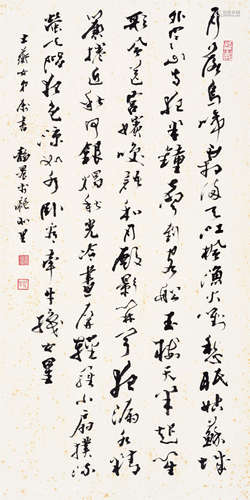 月落烏啼霜滿天江楓漁火對愁眠姑蘇城
外寒山寺夜半鐘聲到客船玉樓天半起笙
歌風送宮嬪笑語和月殿影開聞夜漏水精
簾捲近秋河銀燭秋光冷畫屏輕羅小扇撲流
螢天階夜色涼如水臥看牽牛織女星
女弟 靜農於龍坡里